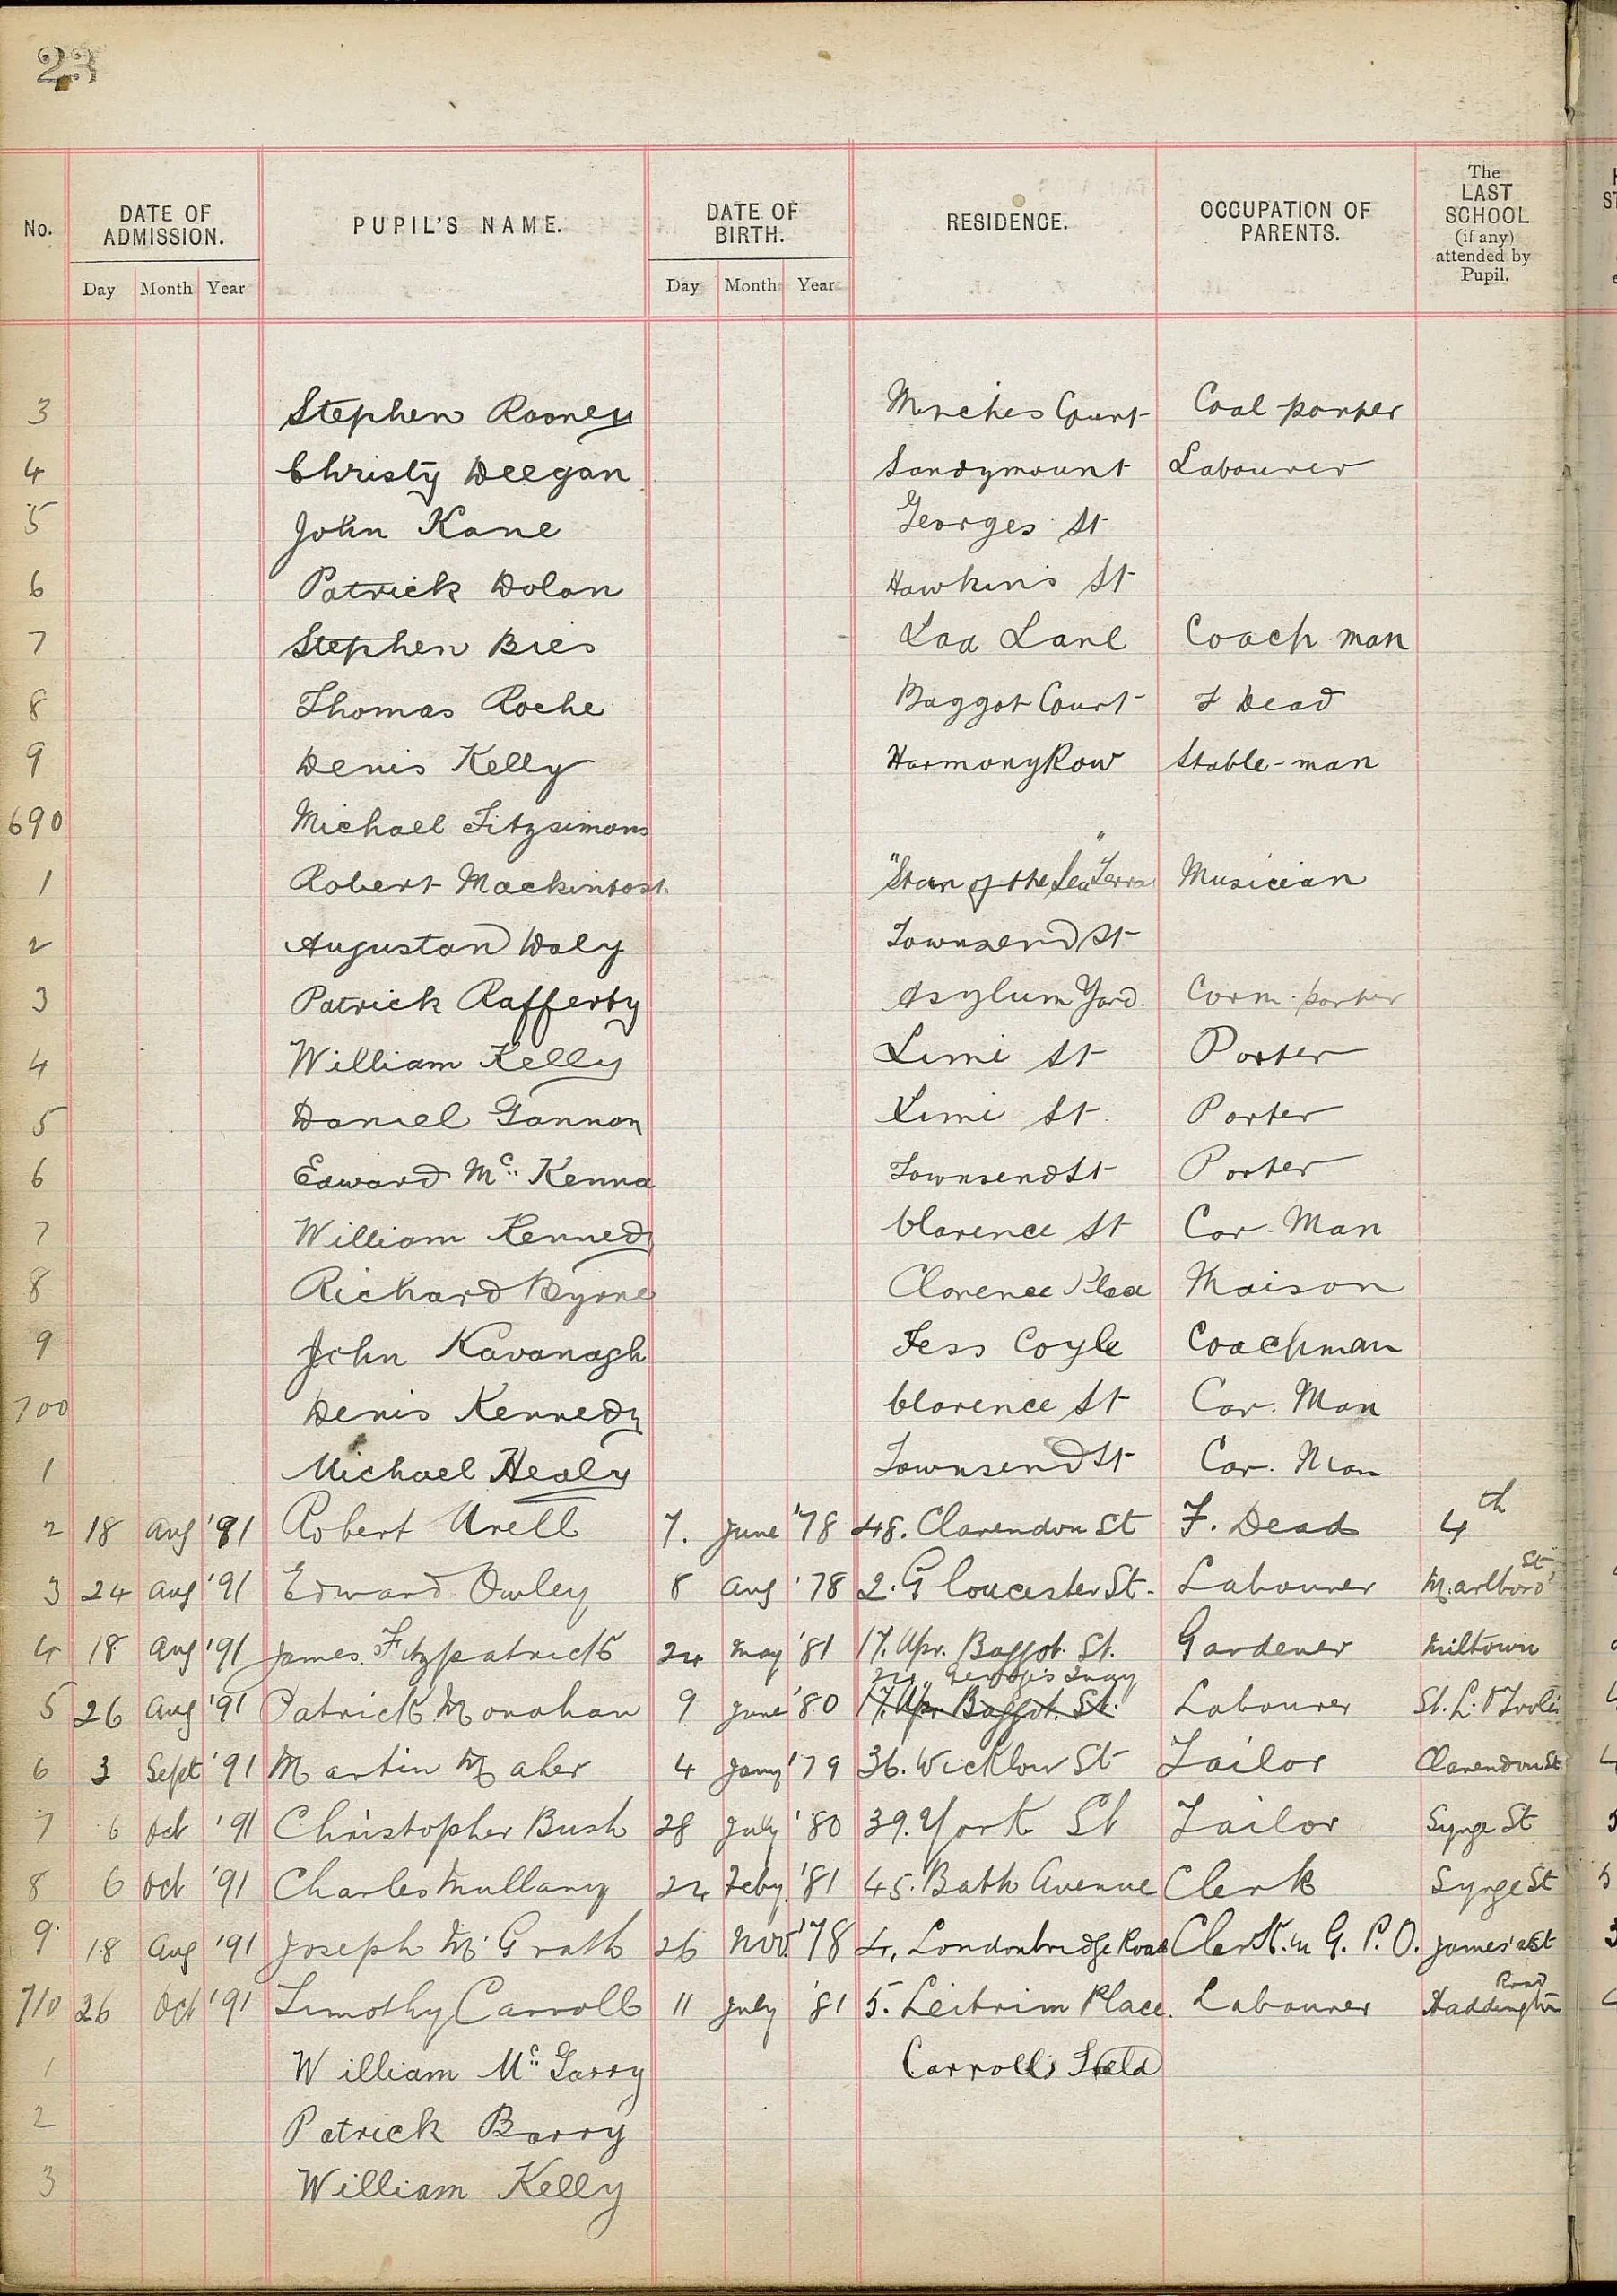 23
No. DATE OF ADMISSION. PUPIL'S NAME. DATE OF BIRTH. RESIDENCE. OCCUPATION OF PARENTS. The LAST SCHOOL (if any) attended by Pupil.
Day Month Year Day Month Year
3 Stephen Rooney Court Coal porter
4 Christy Deegan Sandymount Labourer
5 John Kane Georges St
6 Patrick Dolan Hawkins St
7 Stephen Bies Lane Coach man
8 Thomas Roche Baggot Court F Dead
9 Denis Kelly Harmony Row Stable-man
690 Michael Fitzsimons
1 Robert Mackintosh "Star of the Sea" Terra Musician
2 Augustan Daly Townsend St
3 Patrick Rafferty Asylum Yard. Corn. porter
4 William Kelly Lime St Porter
5 Daniel Gannon Lime St. Porter
6 Edward Mc. Kenna Townsend St Porter
7 William Kennedy Clarence St Car. Man
8 Richard Byrne Clarence Place Maison
9 John Kavanagh Coachman
700 Denis Kennedy Clarence St Car. Man
1 Michael Healy Townsend St Car. Man
2 18 Aug '91 Robert Urell 7. June '78 48. Clarendon St F. Dead 4th
3 24 Aug '91 Edward Owley 8 Aug '78 2. Gloucester St. Labourer Marlboro' St
4 18 Aug '91 James Fitzpatrick 24 May '81 17. Upr. Baggot. St. Gardener Miltown
5 26 Aug '91 Patrick Monahan 9 June '80 17. Upr. Baggot. St. 22, George's Quay Labourer St. L. O'Tooles
6 3 Sept '91 Martin Maher 4 Jany '79 36. Wicklow St Tailor Clarendon St
7 6 Oct '91 Christopher Bush 28 July '80 39. York St Tailor Synge St
8 6 Oct '91 Charles Mullany 24 Feby. '81 45. Bath Avenue Clerk Synge St
9. 18 Aug '91 Joseph Mc Grath 26 Nov. '78 4, Londonbridge Road Clerk. in G. P. O. James' St
710 26 Oct '91 Timothy Carroll 11 July '81 5. Leitrim Place. Labourer Haddington Road
1 William Mc. Garry Carrolls Field
2 Patrick Barry
3 William Kelly